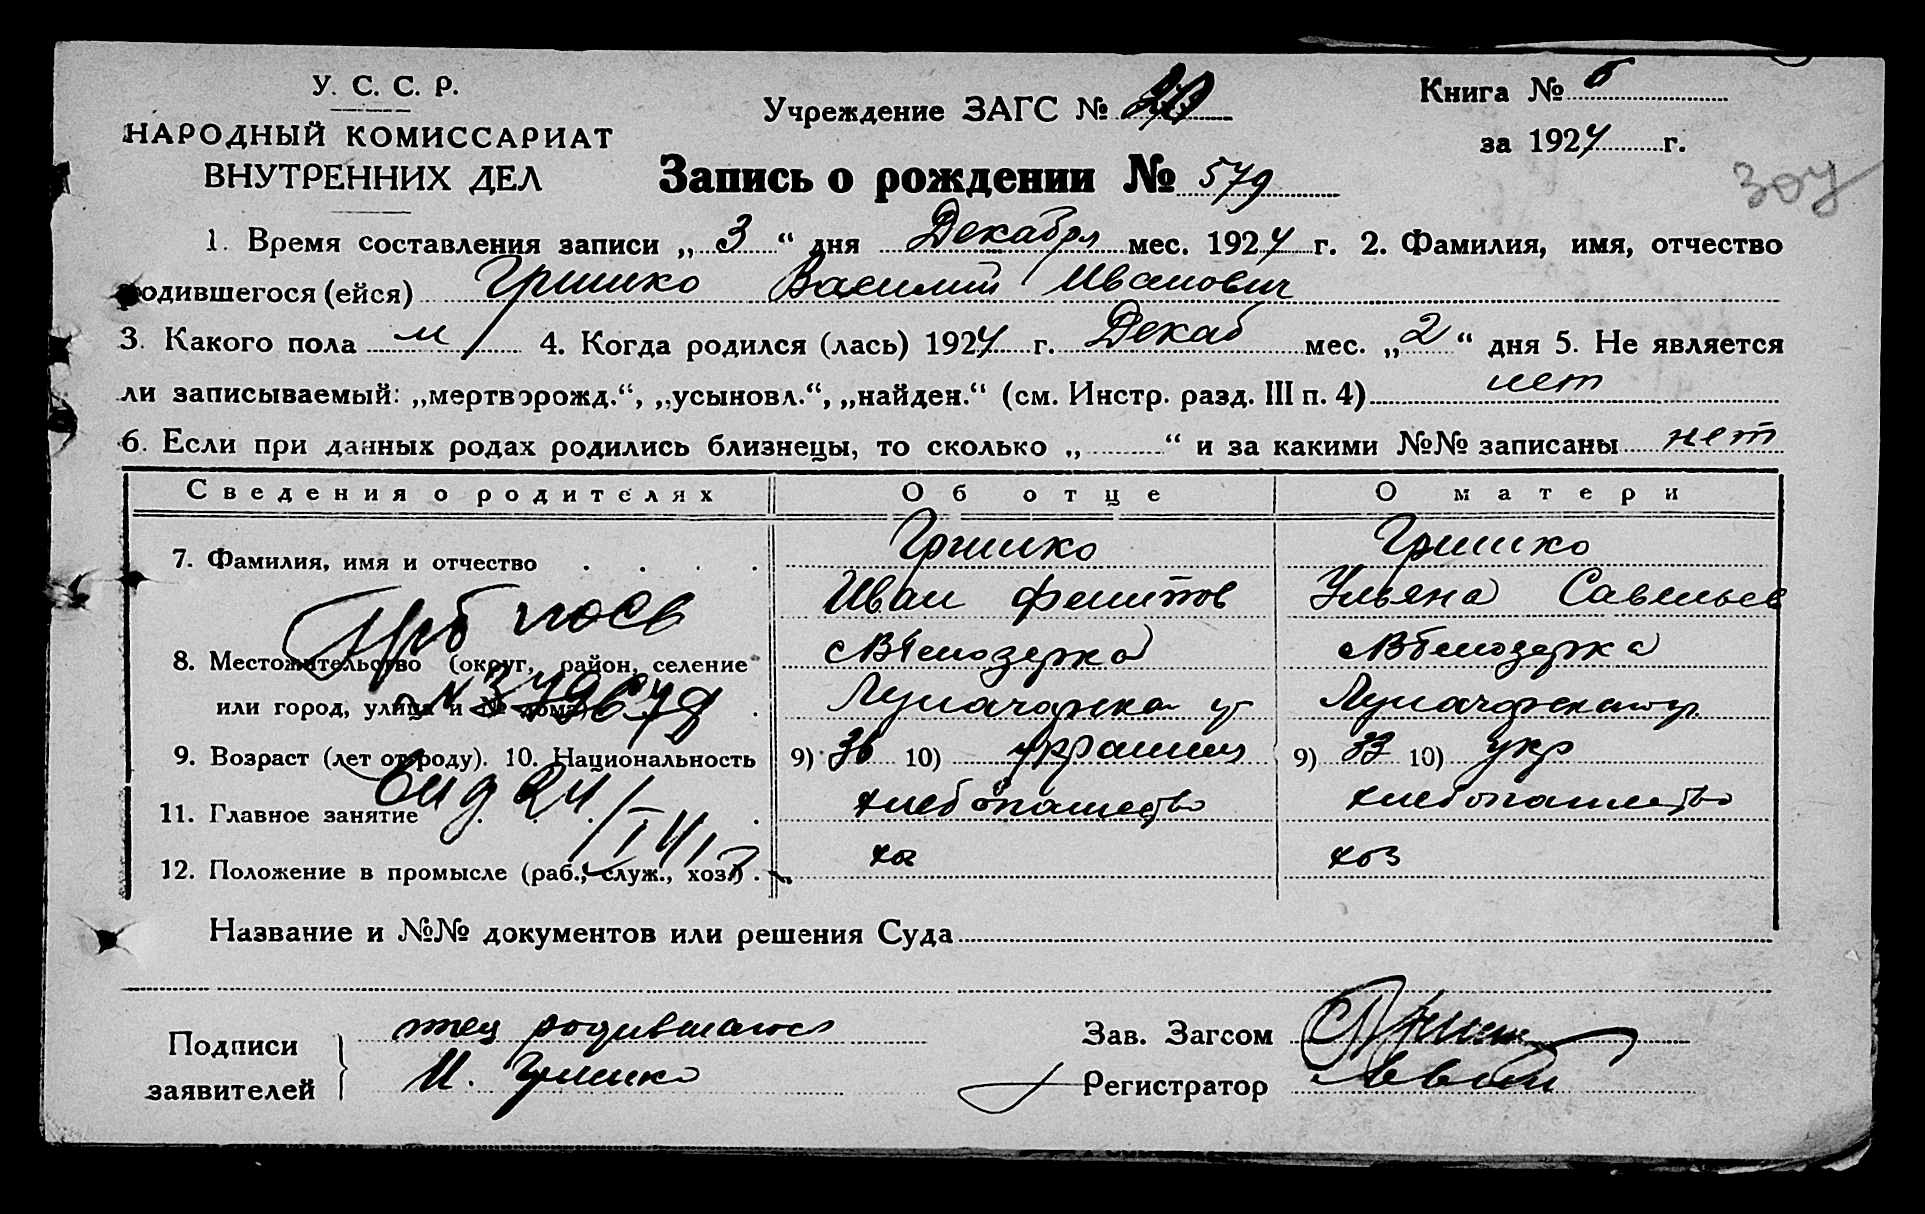 У. С. С. Р.
НАРОДНЫЙ КОМИССАРИАТ
ВНУТРЕННИХ ДЕЛ
Учреждение ЗАГС №
Книга № 6
за 1924 г.
Запись о рождении № 579
304
1. Время составления записи „ 3 “ дня Декабря мес. 1924 г. 2. Фамилия, имя, отчество
родившегося (ейся) Гришко Василий Иванович
3. Какого пола м 4. Когда родился (лась) 1924 г. Декаб мес. „ 2 “ дня 5. Не является
ли записываемый: „мертворожд.“, „усыновл.“, „найден.“ (см. Инстр. разд. III п. 4) нет
6. Если при данных родах родились близнецы, то сколько „ “ и за какими №№ записаны нет
Сведения о родителях Об отце О матери
7. Фамилия, имя и отчество . . . . Гришко Гришко
Иван Филипов Ульяна Савельев
8. Местожительство (округ, район, селение с Белозерка с Белозерка
или город, улица и № дома) .
9. Возраст (лет от роду). 10. Национальность 9) 36 10) украинец 9) 33 10) укр
11. Главное занятие . . . . хлебопашество хлебопашество
12. Положение в промысле (раб., служ., хоз.) . хоз хоз
Название и №№ документов или решения Суда
Подписи
заявителей
отец родившагося
И. Гришко
Зав. Загсом
Регистратор